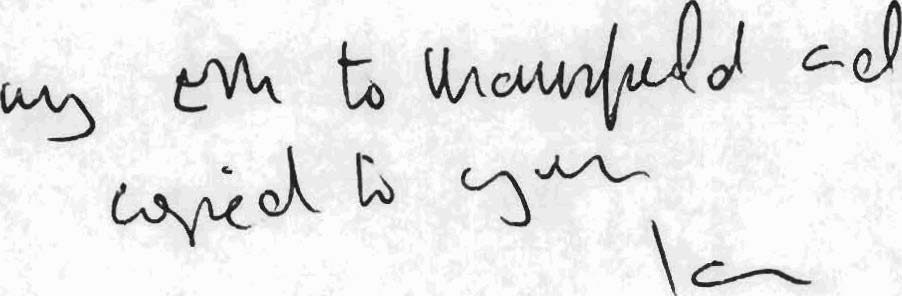 my em to Mansfield and
copied to you
Ian